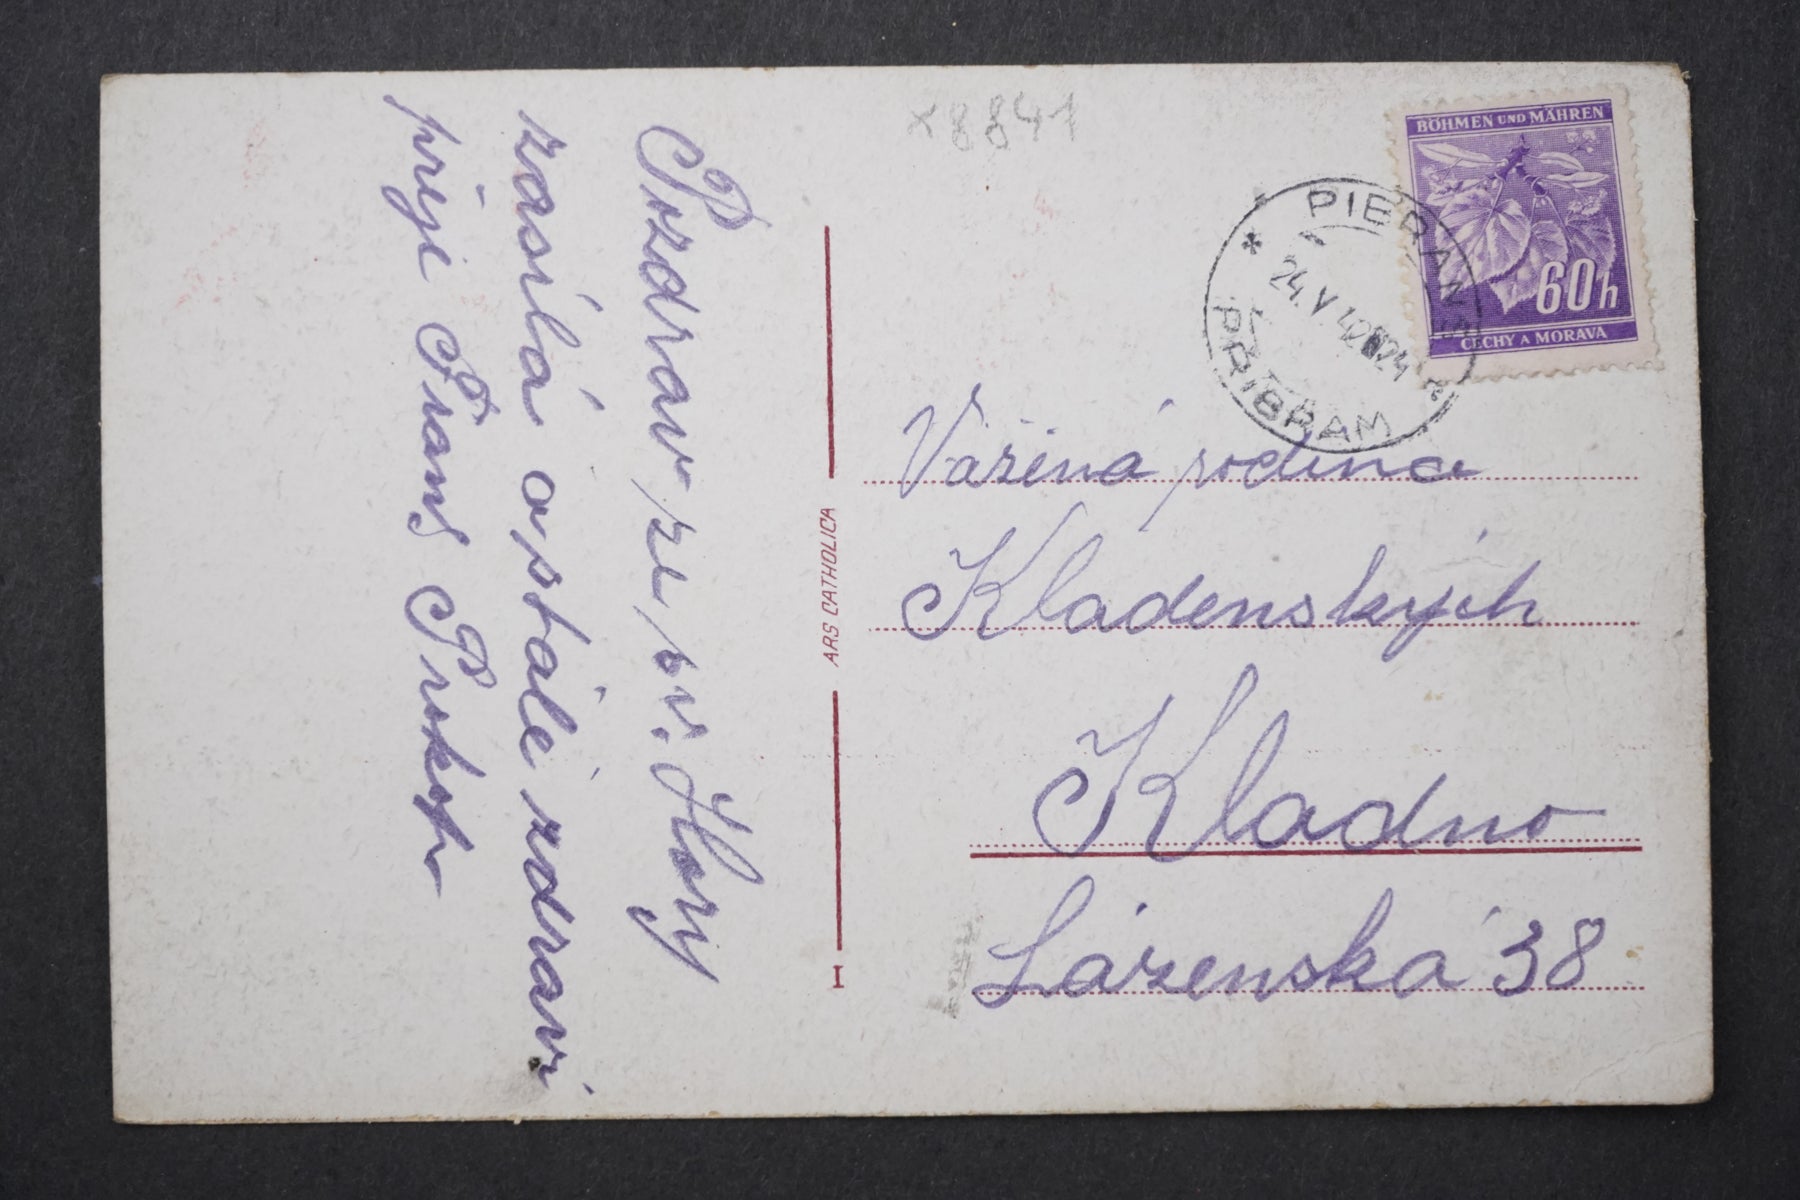 x8841
BÖHMEN UND MÄHREN
60h
ČECHY A MORAVA
PIBRANS
24.V.42
PŘÍBRAM
Vážená rodina
Kladenských
Kladno
Lázenská 38
ARS CATHOLICA
I
Pozdrav ze sv. Hory
zasílá a stálé zdraví
přeje Franc Prokop